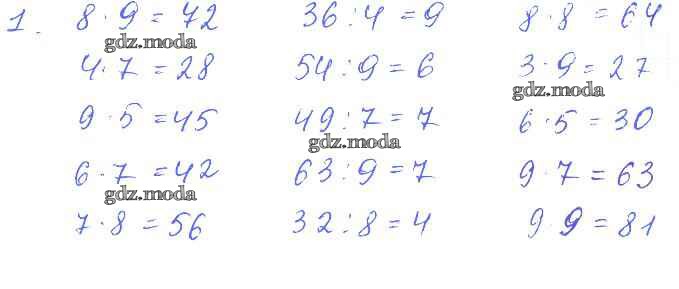 1. 8·9=72 36:4=9 8·8=64
gdz.moda
4·7=28 54:9=6 3·9=27
gdz.moda
9·5=45 49:7=7 6·5=30
gdz.moda
6·7=42 63:9=7 9·7=63
gdz.moda
7·8=56 32:8=4 9·9=81